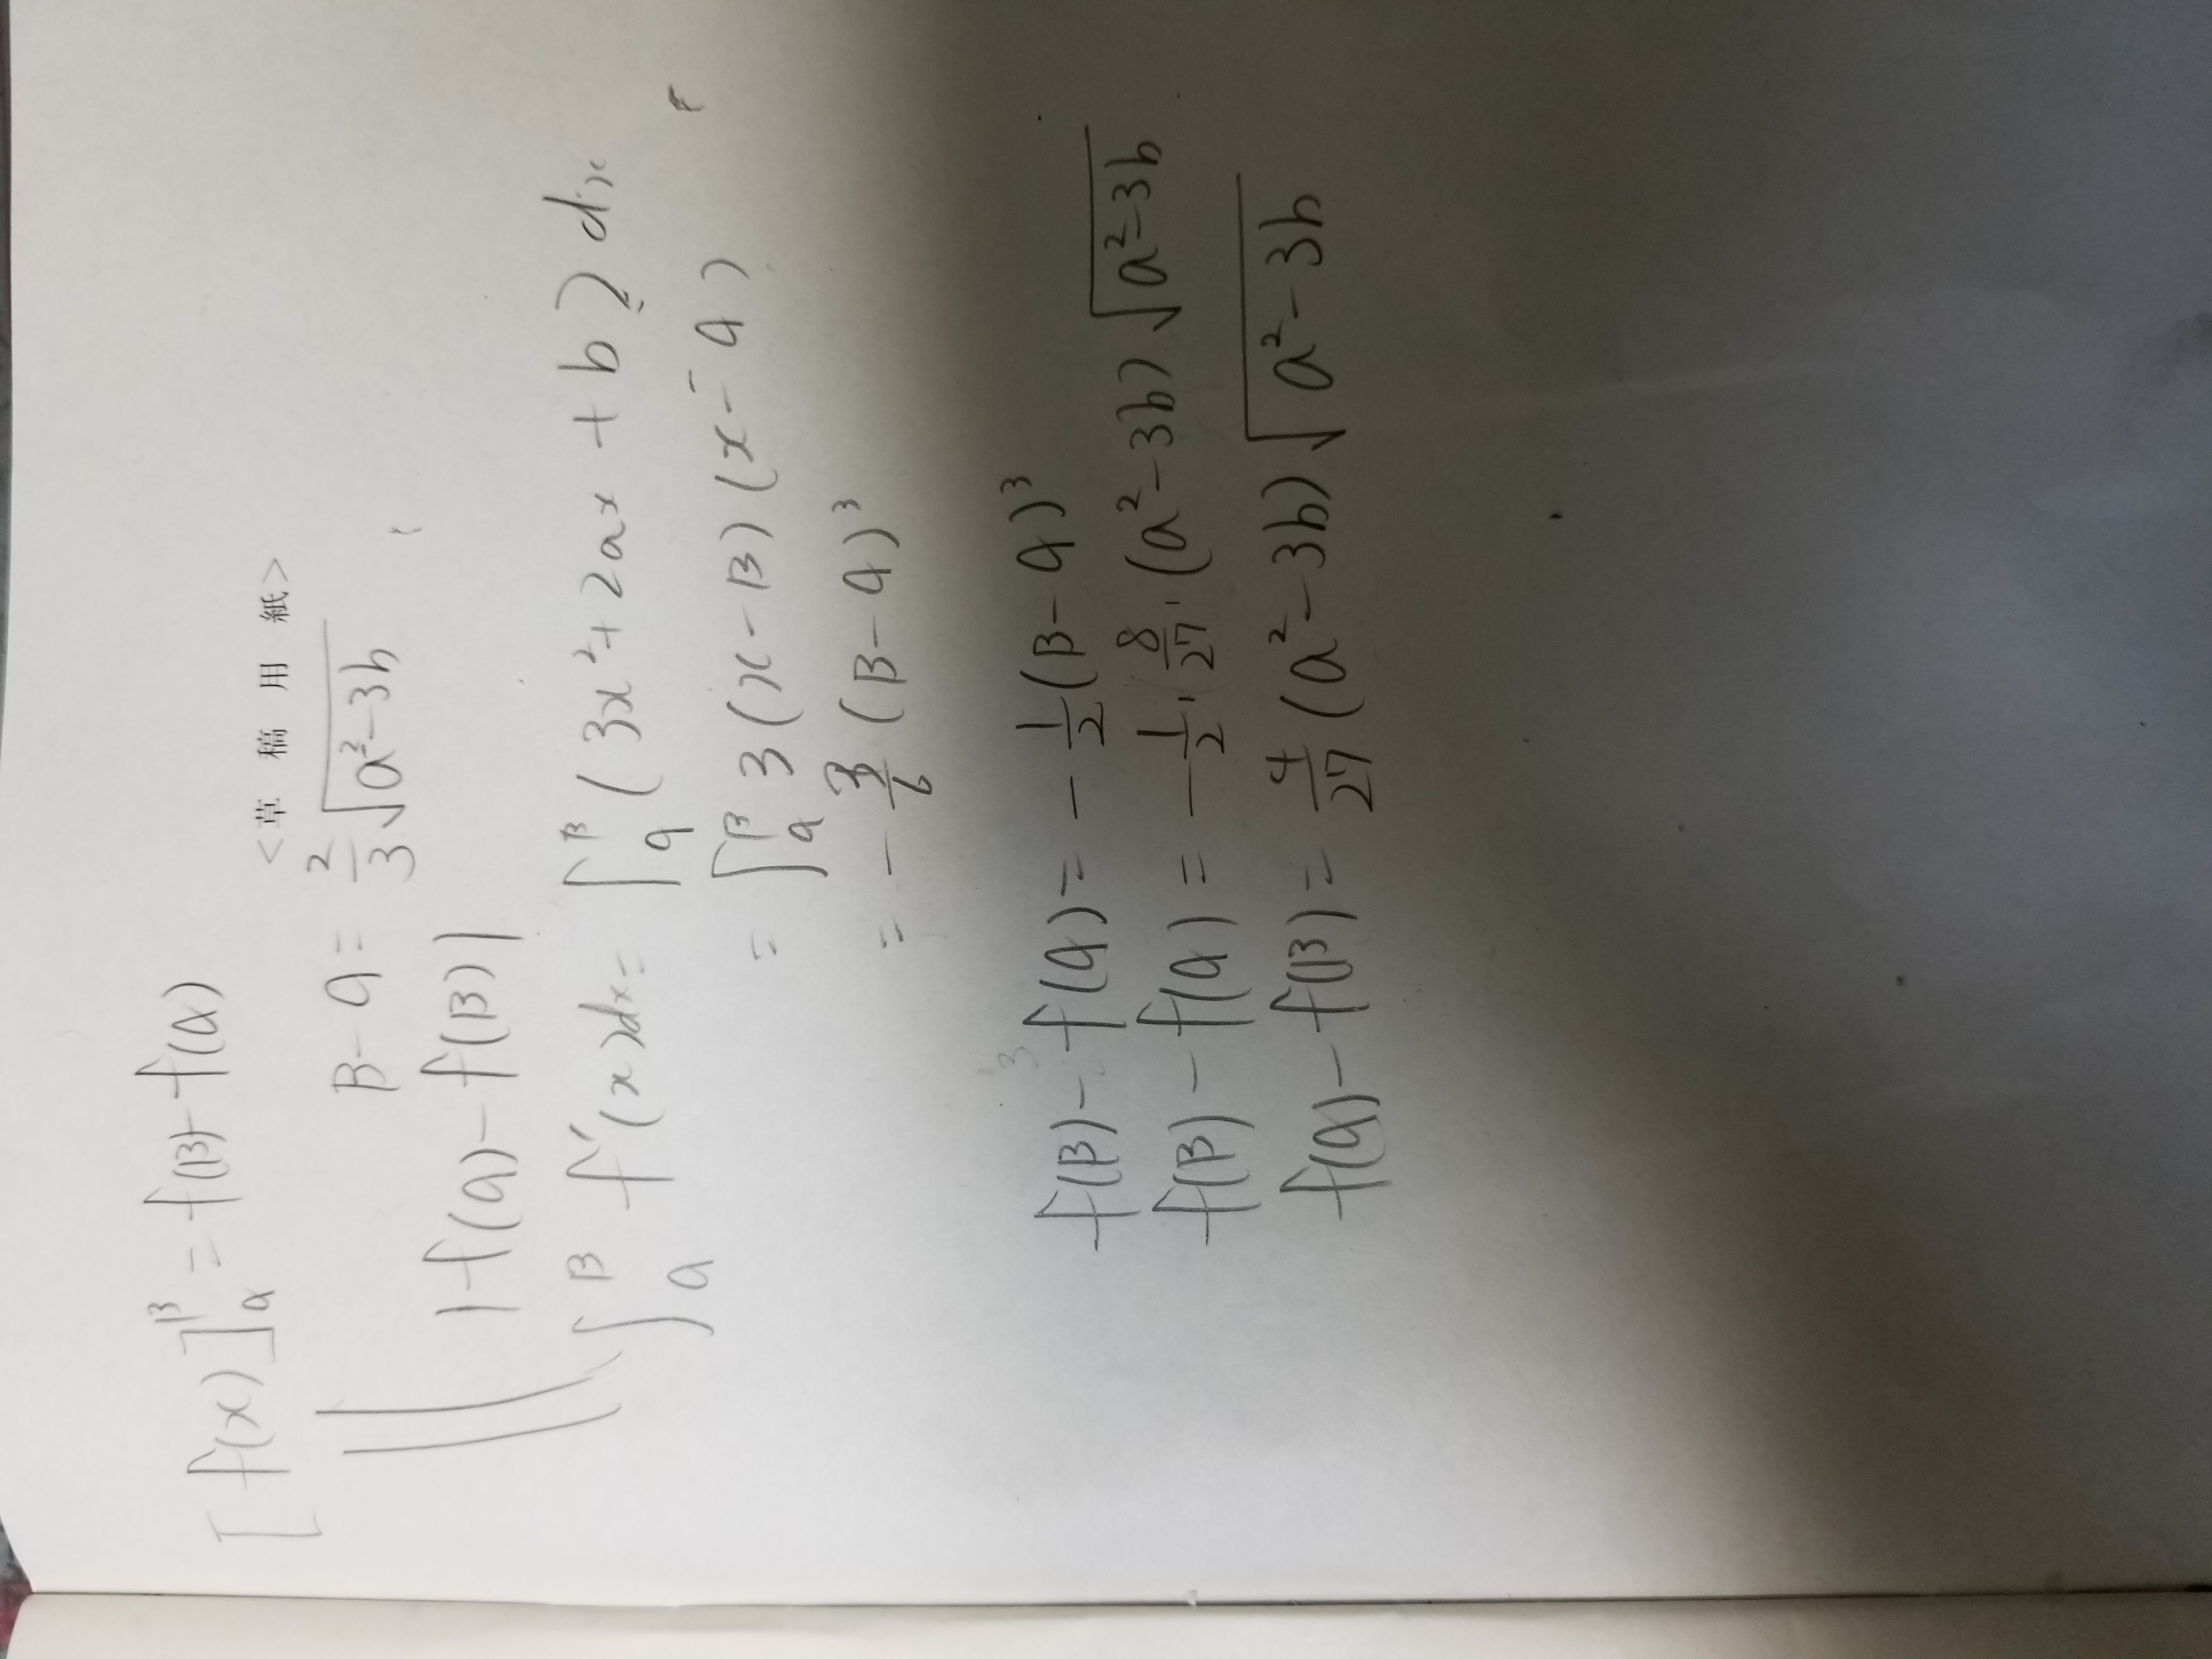 [f(x)]_α^β = f(β) - f(α)
<草 稿 用 紙>
β - α = 2/3 √(a²-3b)
|f(α) - f(β)|
∫_α^β f'(x)dx = ∫_α^β (3x² + 2ax + b) dx
= ∫_α^β 3(x - β)(x - α)
= - 3/6 (β - α)³
f(β) - f(α) = - 1/2 (β - α)³
f(β) - f(α) = - 1/2 · 8/27 · (a² - 3b) √(a²-3b)
f(α) - f(β) = 4/27 (a² - 3b) √(a² - 3b)